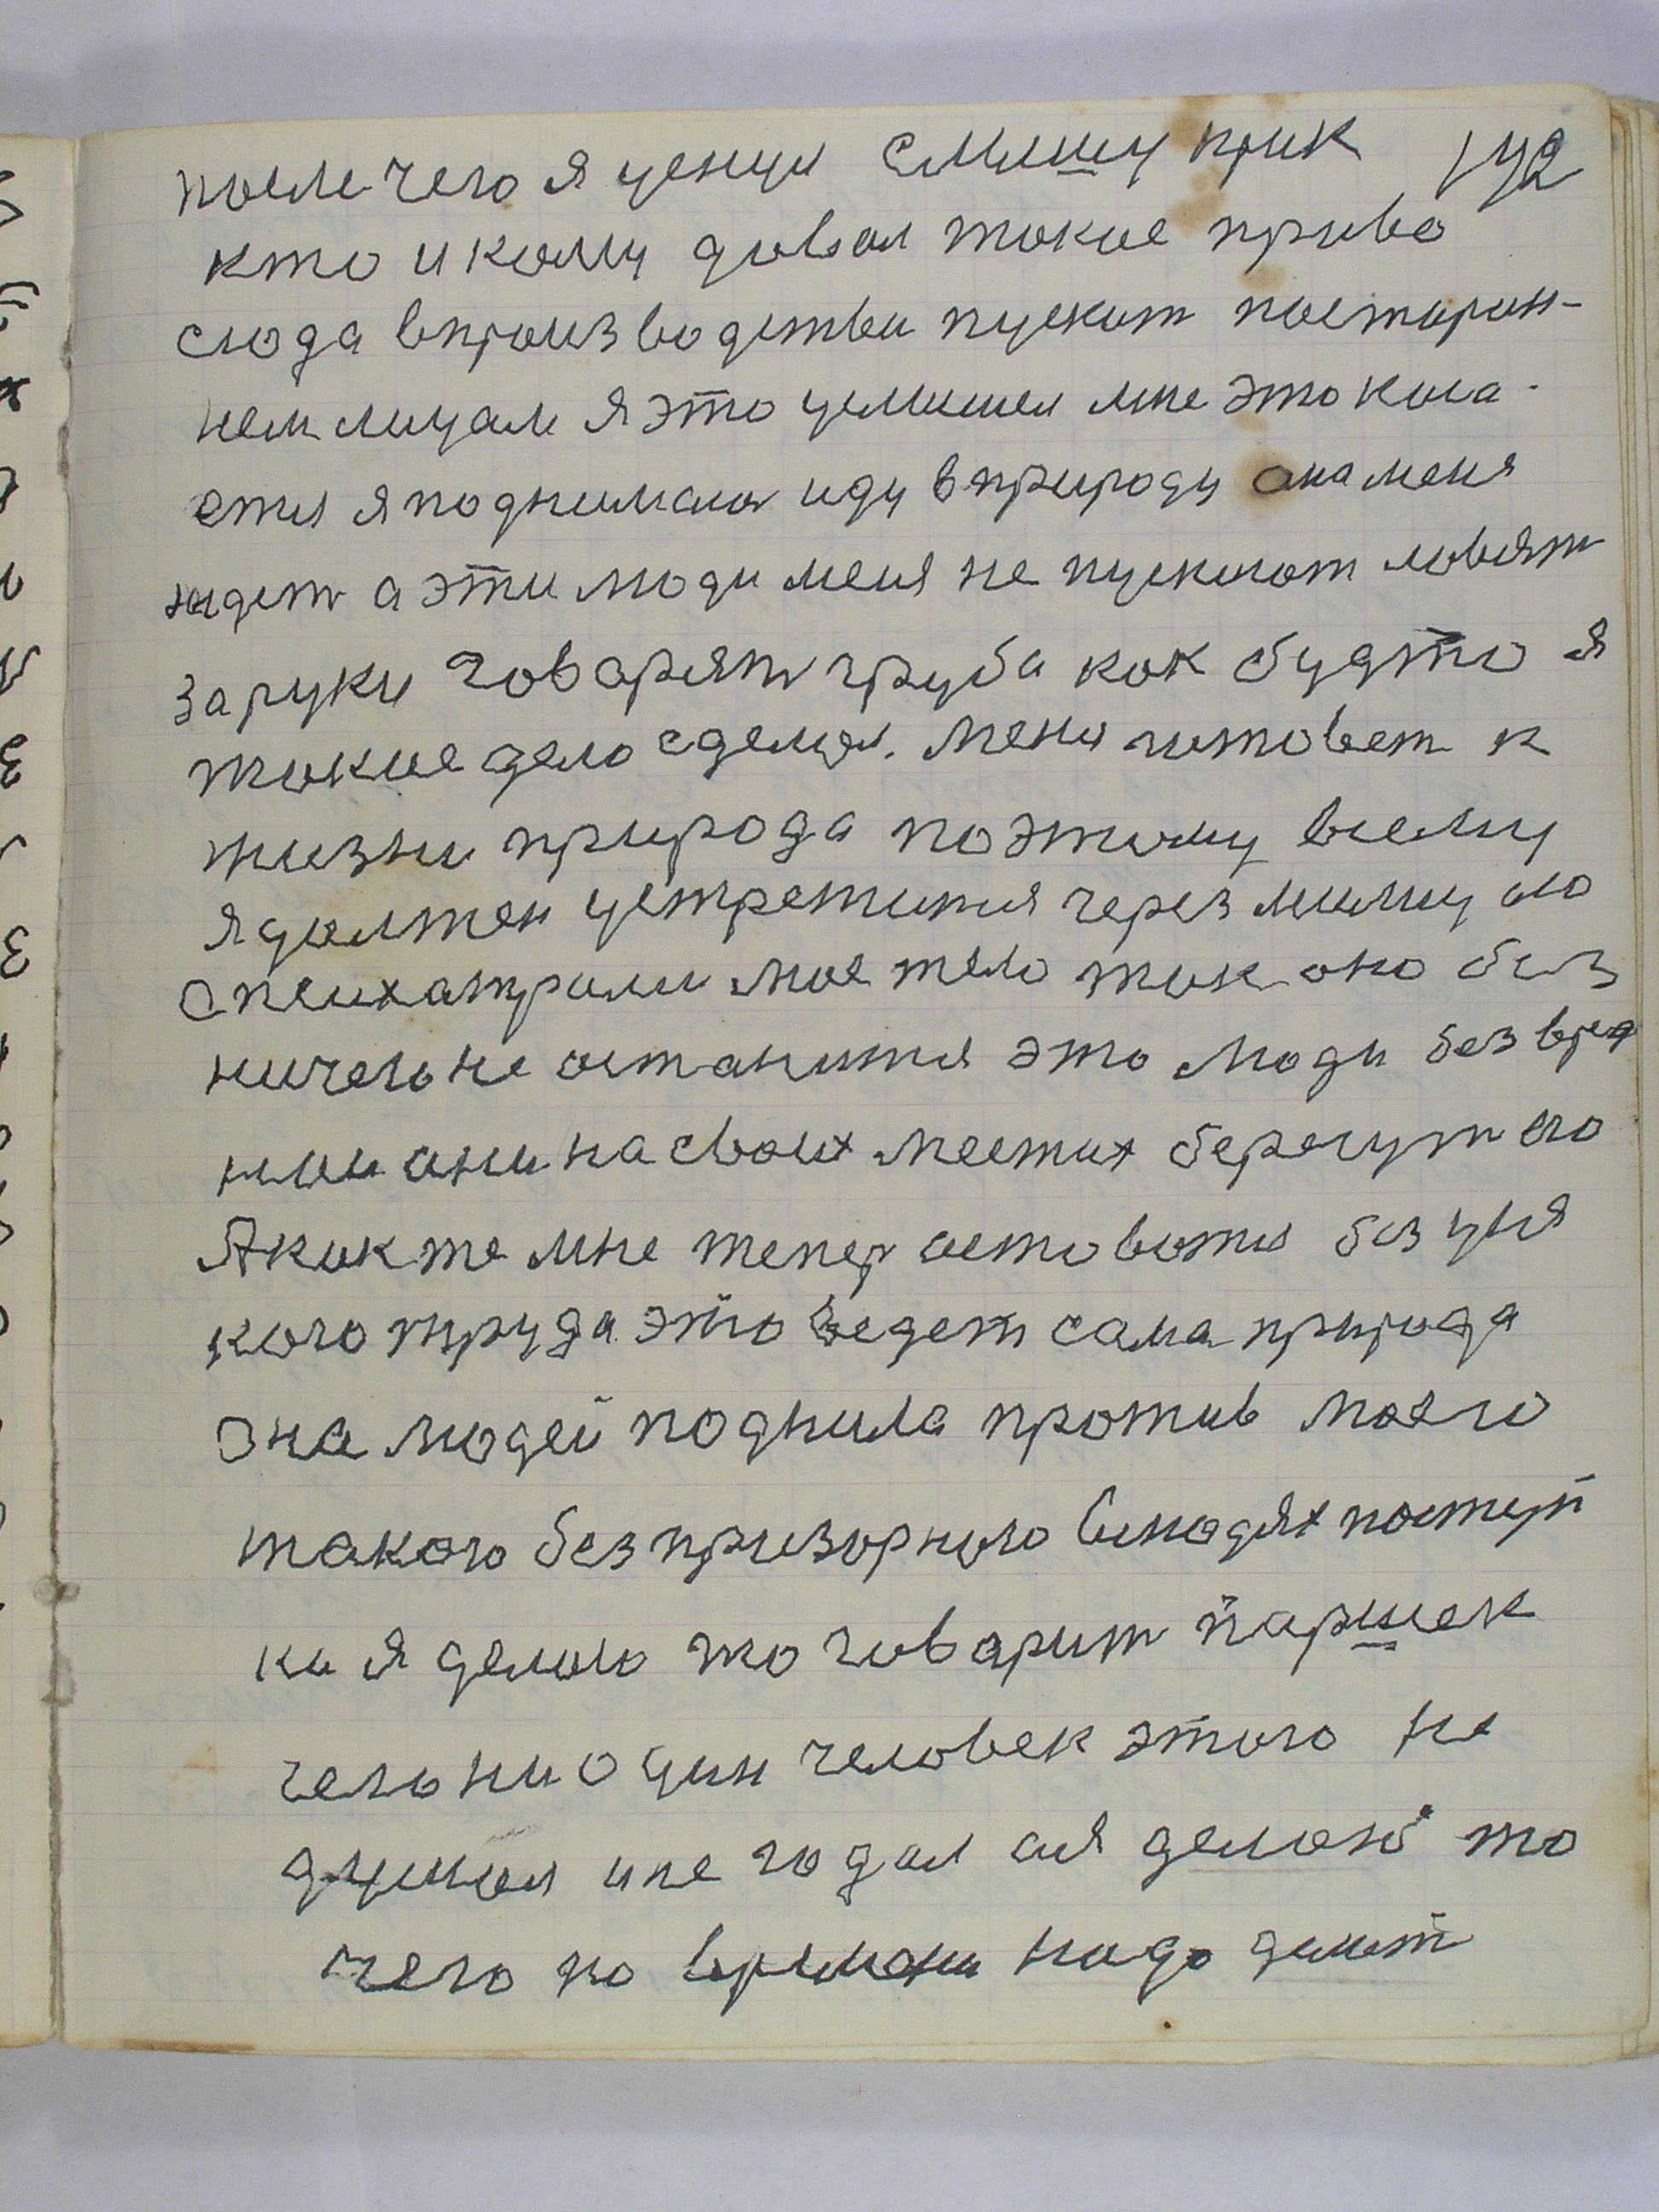 после чего я уснул слышу крик 142
кто и кому довал токое право
сюда впроизводстви пускат посторон-
нем лицам я это услишел мне это коса-
ется я поднимаюс иду вприроду она меня
ждет а эти люди меня не пускают ловят
за руки говорят груба как будто я
токое дело сделал. меня готовет к
жизни природа поэтому всему
я должен устретится через мимику
психатрами мое тело так оно без
ничего не останится это люди без врем
они на своих местах берегут его
А как же мне тепер оставатся без уся
кого труда это ведет сама природа
Она людей подняла против моего
такого безпризорного влюдях поступ
ка я делаю то говарит паршек
чего ни один человек этого не
думал и не годал а я делаю то
чего по времени надо делат